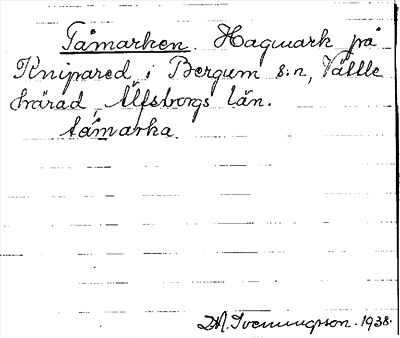 Tåmarken. Hagmark på
Knipared i Bergum s:n, Vättle
härad, Älfsborgs län.
tåmarka.
D.A. Svenningsson. 1938.